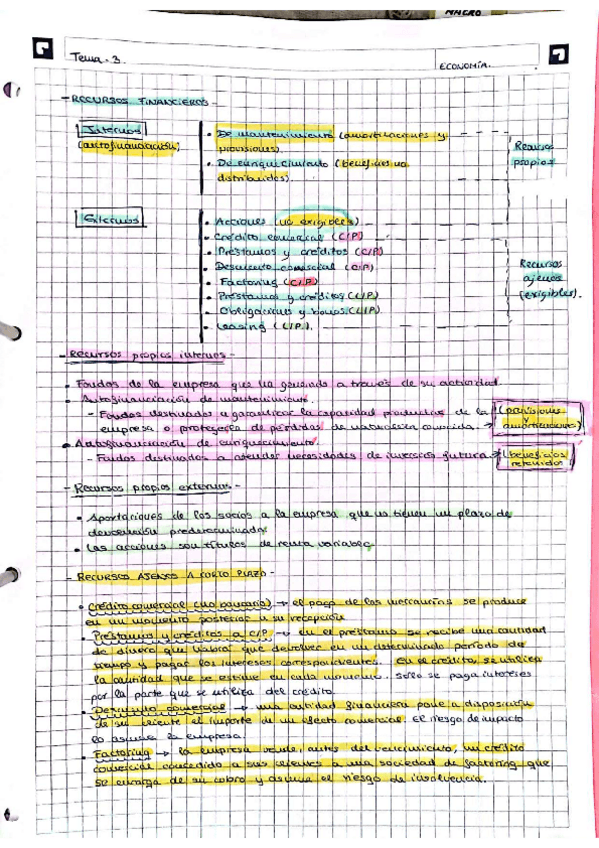 MACRO
Tema. 3.
ECONOMÍA.
- RECURSOS FINANCIEROS -
Internos
(autofinanciación)
• De mantenimiento (amortizaciones y
provisiones)
• De enriquecimiento (beneficios no
distribuidos).
Recursos
propios
Externos
• Acciones (no exigibles)
• Crédito comercial (C/P)
• Préstamos y créditos (C/P)
• Descuento comercial (C/P)
• Factoring (C/P)
• Préstamos y créditos (L/P)
• Obligaciones y bonos (L/P)
• Leasing (L/P).
Recursos
ajenos
(exigibles).
- Recursos propios internos -
• Fondos de la empresa que ha generado a través de su actividad.
• Autofinanciación de mantenimiento.
- Fondos destinados a garantizar la capacidad productiva de la
empresa o protegerla de pérdidas de naturaleza conocida. → (provisiones
y
amortizaciones)
• Autofinanciación de enriquecimiento.
- Fondos destinados a atender necesidades de inversión futura → (beneficios
retenidos
- Recursos propios externos -
• Aportaciones de los socios a la empresa que no tienen un plazo de
devolución predeterminado.
• Las acciones son títulos de renta variable.
- RECURSOS AJENOS A CORTO PLAZO -
• Crédito comercial (no bancario) → el pago de las mercancías se produce
en un momento posterior a su recepción
• Préstamos y créditos a C/P → en el préstamo se recibe una cantidad
de dinero que habrá que devolver en un determinado período de
tiempo y pagar los intereses correspondientes. En el crédito, se utiliza
la cantidad que se estime en cada momento. solo se paga intereses
por la parte que se utiliza del crédito.
• Descuento comercial → una entidad financiera pone a disposición
de su cliente el importe de un efecto comercial. El riesgo de impacto
lo asume la empresa.
• Factoring → la empresa vende, antes del vencimiento, un crédito
comercial concedido a sus clientes a una sociedad de factoring que
se encarga de su cobro y asume el riesgo de insolvencia.